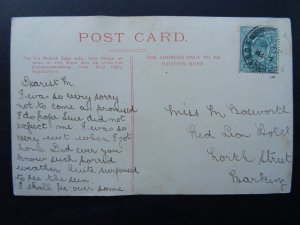 POST CARD.
For the British Isles only, this Space, as
well as the Back may be used for
Communications. (See Post Office
Regulations).
THE ADDRESS ONLY TO BE
WRITTEN HERE
Dearest M.
I was so very sorry
not to come as promised
I do hope Lue did not
expect me. I was so
very wet when I got
home Did ever you
know such horrid
weather quite surprised
to see the sun
I shall be over some
Miss M Bosworth
Red Lion Hotel
North Street
Barking